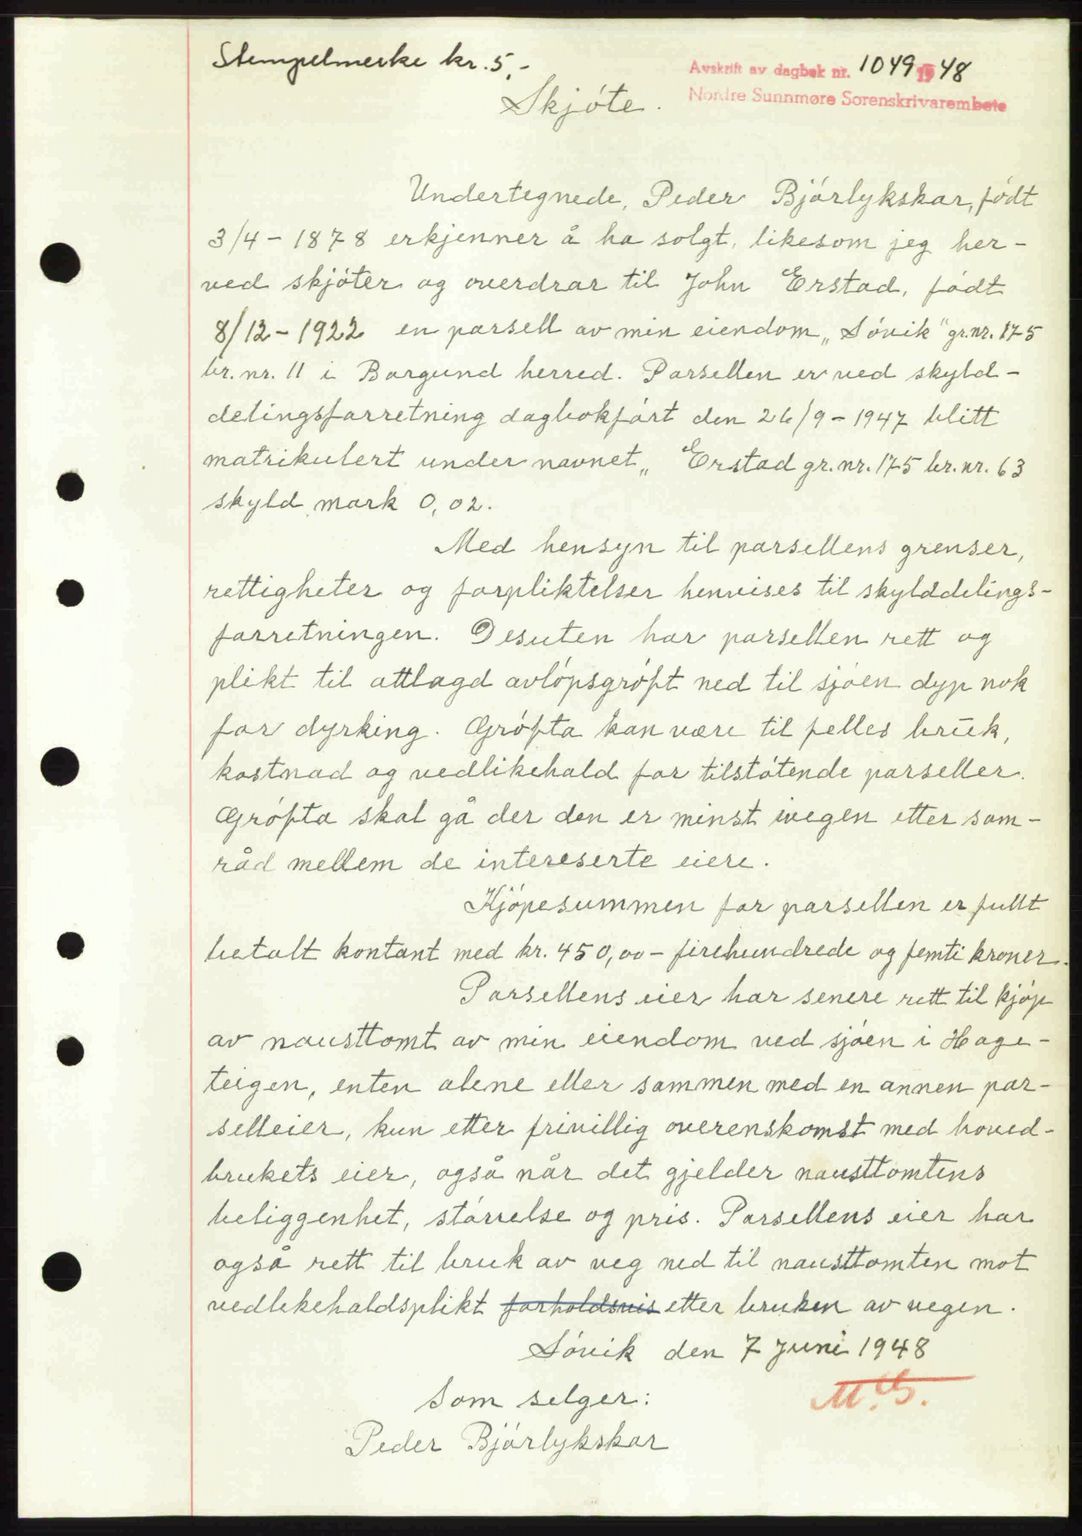 Stempelmerke kr. 5,-
Avskrift av dagbok nr. 1049 1948
Nordre Sunnmøre Sorenskrivarembete
Skjóte.
Undertegnede, Peder Bjórlykskar, födt
3/4 - 1878 erkjenner å ha solgt, likesom jeg her-
ved skjóter og overdrar til John Erstad, födt
8/12 - 1922 en parsell av min eiendom „Sóvik" gr.nr. 175
br. nr. 11 i Borgund herred. Parsellen er ved skyld-
delingsforretning dagbokfórt den 26/9 - 1947 blitt
matrikulert under navnet „ Erstad gr. nr. 175 br. nr. 63
skyld mark 0,02.
Med hensyn til parsellens grenser,
rettigheter og forpliktelser henvises til skylddelings-
forretningen. Desuten har parsellen rett og
plikt til attlagd avlópsgróft ned til sjóen dyp nok
for dyrking. Grófta kan være til felles brūk,
kostnad og vedlikehald for tilstótende parseller.
Grófta skal gå der den er minst ivegen etter sam-
råd mellem de intereserte eiere.
Kjópesummen for parsellen er fullt
betalt kontant med kr. 450,00 - firehundrede og femti kroner.
Parsellens eier har senere rett til kjóp
av nausttomt av min eiendom ved sjóen i Hage-
teigen, enten alene eller sammen med en annen par-
selleier, kun etter frivillig overenskomst med hoved-
brukets eier, også når det gjelder nausttomtens
beliggenhet, stórrelse og pris. Parsellens eier har
også rett til bruk av veg ned til nausttomten mot
vedlikehaldsplikt forholdsvis etter bruken av vegen.
Sóvik den 7 juni 1948
Som selger:
Peder Bjórlykskar